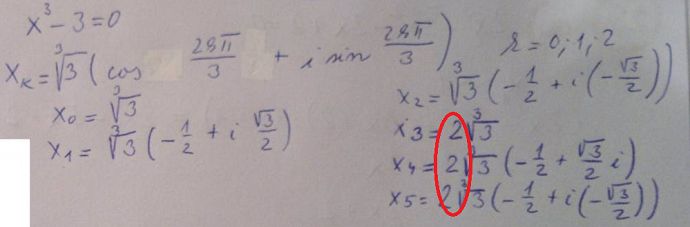 x³ - 3 = 0
x_k = ∛3 ( cos 2kπ/3 + i sin 2kπ/3 ), k = 0,1,2
x₀ = ∛3
x₁ = ∛3 ( -1/2 + i √3/2 )
x₂ = ∛3 ( -1/2 + i ( -√3/2 ) )
x₃ = 2∛3
x₄ = 2∛3 ( -1/2 + √3/2 i )
x₅ = 2∛3 ( -1/2 + i ( -√3/2 ) )